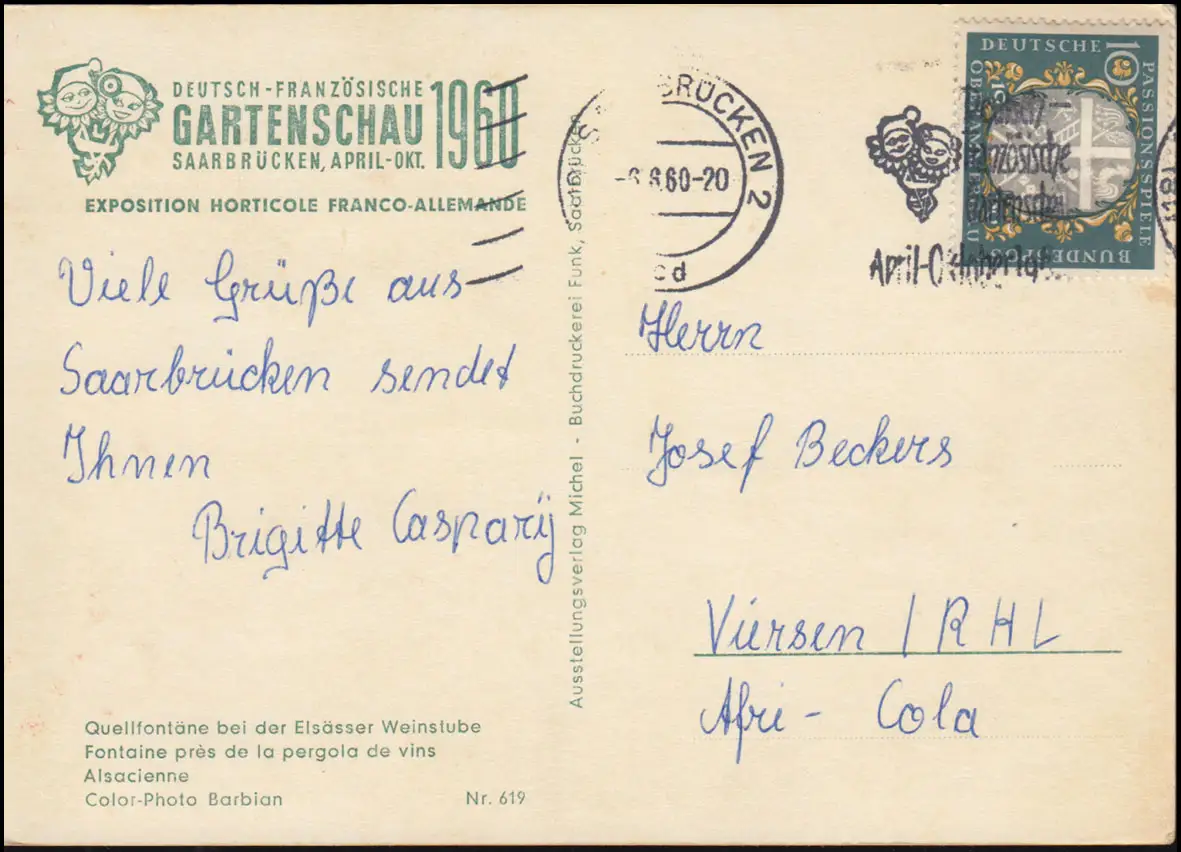 DEUTSCH-FRANZÖSISCHE
GARTENSCHAU 1960
SAARBRÜCKEN, APRIL-OKT.
EXPOSITION HORTICOLE FRANCO-ALLEMANDE
Viele Grüße aus
Saarbrücken sendet
Ihnen
Brigitte Caspary
Quellfontäne bei der Elsässer Weinstube
Fontaine près de la pergola de vins
Alsacienne
Color-Photo Barbian Nr. 619
Ausstellungsverlag Michel - Buchdruckerei Funk, Saarbrücken
BRÜCKEN 2
6.60-20
cd
April-Oktober
DEUTSCHE
BUNDESPOST
PASSIONSSPIELE
OBERAMMERGAU
10
Herrn
Josef Beckers
Viersen / RHL
Afri-Cola